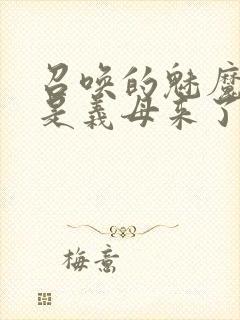 召唤的魅魔
是义母来了
梅意